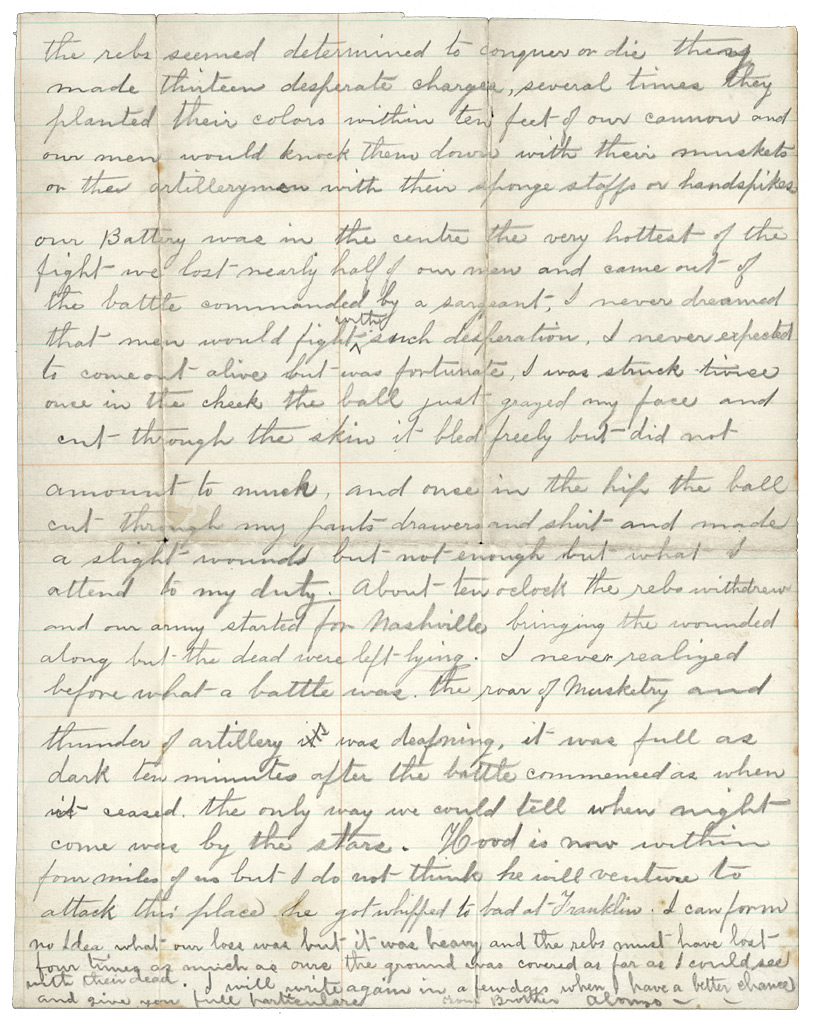 the rebs seemed determined to conquer or die they
made thirteen desperate charges, several times they
planted their colors within ten feet of our cannon and
our men would knock them down with their muskets
or the artillerymen with their sponge staffs or handspikes
our Battery was in the centre the very hottest of the
fight we lost nearly half of our men and came out of
the battle commanded by a sargeant, I never dreamed
that men would fight with such desperation, I never expected
to come out alive but was fortunate, I was struck twice
once in the cheek the ball just grazed my face and
cut through the skin it bled freely but did not
amount to much, and once in the hip the ball
cut through my pants drawers and shirt and made
a slight wound but not enough but what I
attend to my duty. About ten oclock the rebs withdrew
and our army started for Nashville bringing the wounded
along but the dead were left lying. I never realized
before what a battle was. the roar of Musketry and
thunder of artillery was deafning, it was full as
dark ten minutes after the battle commenced as when
it ceased. the only way we could tell when night
come was by the stars. Hood is now within
four miles of us but I do not think he will venture to
attack this place he got whipped to bad at Franklin. I can form
no Idea what our loss was but it was heavy and the rebs must have lost
four times as much as ours the ground was covered as far as I could see
with their dead. I will write again in a few days when I have a better chance
and give you full particulars Your Brother Alonzo